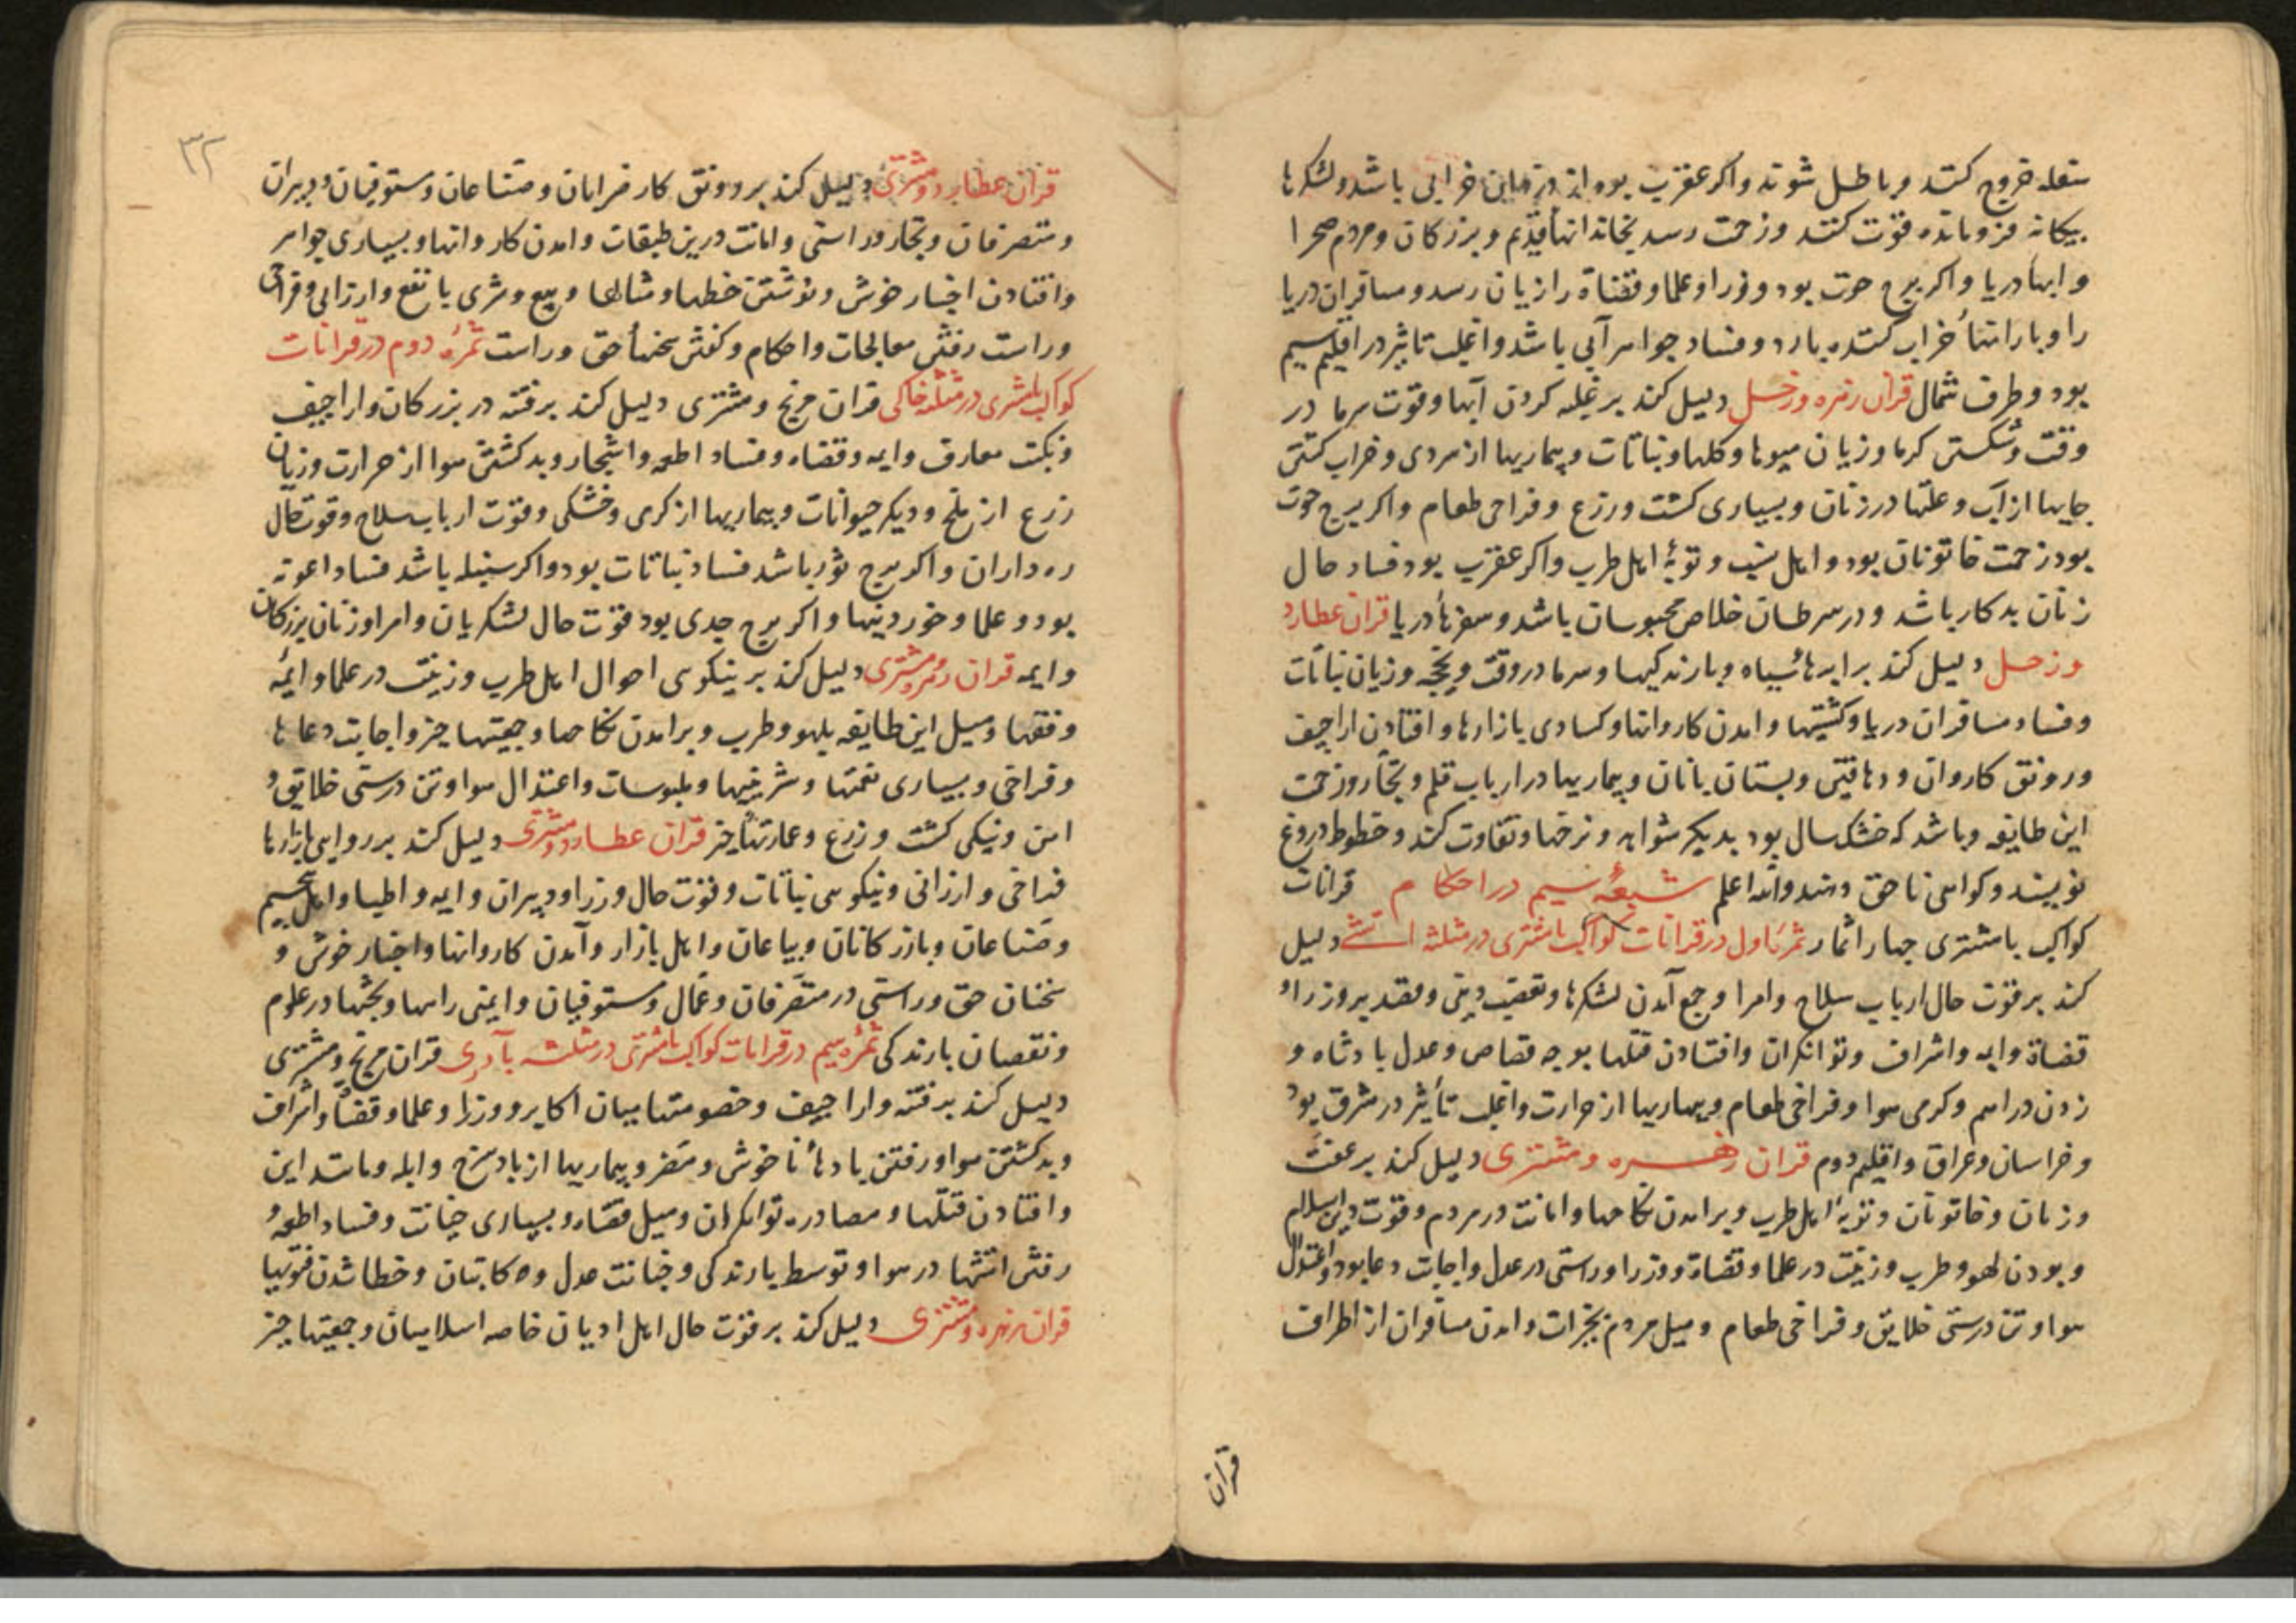 سفله خروج کنند و باطل شوند و اکر عقرب بود از دزدان خرابی باشد و لشکرها
بیکانه فرومانده قوت کنند و زحمت رسد بخاندانهاء قدیم و بزرکان و مردم صحرا
و ابهاء دریا و اکر برج حوت بود وزرا و علما و قضاة را زیان رسد و مسافران دریا
را و بارانهاء خراب کننده بارد و فساد جواهر آبی باشد و اغلب تاثیر در اقلیم سیم
بود و طرف شمال قران زهره و زحل دلیل کند بر غلبه کردن آبها و قوت سرما در
وقت و شکستن کرما و زیان میوها و کلها و نباتات و بیماریها از سردی و خراب کشتن
جایها از آب و علتها در زنان و بسیاری کشت و زرع و فراخی طعام و اکر برج حوت
بود زحمت خاتونان بود و اهل و توبهٔ اهل طرب و اکر عقرب بود فساد حال
زنان بدکار باشد و در سرطان خلاص محبوسان باشد و سفرهاء دریا قران عطارد
و زحل دلیل کند بر ابرهاء سیاه و بارندکیها و سرما در وقت و یخجه و زیان نباتات
و فساد مسافران دریا و کشتیها و امدن کاروانها و کسادی بازارها و افتادن اراجیف
و رونق کاروان و دهاقین و بستان بانان و بیماریها در ارباب قلم و تجار و زحمت
این طایفه و باشد که خشکسال بود بدیکر شواهد و نرخها تفاوت کند و خطوط دروغ
نویسند و کواهی ناحق دهند والله اعلم شعبهٔ سیم در احکام قرانات
کواکب با مشتری چهار اثمار ثمرهٔ اول در قرانات کواکب با مشتری در مثلثه اتشی دلیل
کند بر قوت حال ارباب سلاح و امرا و جمع آمدن لشکرها و تعصب دینی و قصد بر وزرا و
قضاة و ایمه و اشراف و توانکران و افتادن قتلها بوجه قصاص و عدل بادشاه و
زدن دراهم و کرمی هوا و فراخی طعام و بیماریها از حرارت و اغلب تاثیر در مشرق بود
و خراسان و عراق و اقلیم دوم قران زهره و مشتری دلیل کند بر عفت
و زنان و خاتونان و توبهٔ اهل طرب و برامدن نکاحها و امانت در مردم و قوت دین اسلام
و بودن لهو و طرب و زینت در علما و قضاة و وزرا و راستی در عدل و اجابت دعا بود و اعتدال
هوا و تن درستی خلایق و فراخی طعام و میل مردم بخیرات و امدن مسافران از اطراف
قران
۳۲
قران عطارد و مشتری دلیل کند بر رونق کار فرمایان و صناعان و مستوفیان و دبیران
و متصرفان و تجار و راستی و امانت درین طبقات و امدن کاروانها و بسیاری جواهر
و افتادن اخبار خوش و نوشتن خطها و مثالها و بیع و شری با نفع و ارزانی و فراخی
و راست رفتن معالجات و احکام و کفتن سخنهاء حق و راست ثمرهٔ دوم در قرانات
کواکب با مشتری در مثلثه خاکی قران مریخ و مشتری دلیل کند بر فتنه در بزرکان و اراجیف
و نکبت معارف و ایمه و قضاه و فساد اطعمه و اشجار و بد کشتن هوا از حرارت و زیان
زرع از ملخ و دیکر حیوانات و بیماریها از کرمی و خشکی و قوت ارباب سلاح و قوت حال
ره داران و اکر برج ثور باشد فساد نباتات بود و اکر سنبله باشد فساد اعونه
بود و علما و خوردنیها و اکر برج جدی بود قوت حال لشکریان و امرا و زنان بزرکان
و ایمه قران زهره و مشتری دلیل کند بر نیکوئی احوال اهل طرب و زینت در علما و ائمه
و فقها و میل این طایفه بلهو و طرب و برامدن نکاحها و جمعیتها خیر و اجابت دعاها
و فراخی و بسیاری نعمتها و شیرینیها و ملبوسات و اعتدال هوا و تن درستی خلایق و
امن و نیکی کشت و زرع و عمارتهاء خیر قران عطارد و مشتری دلیل کند بر روایی بازارها
فراخی و ارزانی و نیکوئی نباتات و قوت حال وزرا و دبیران و ایمه و اطبا و اهل تنجیم
و صناعان و بازرکانان و بیاعان و اهل بازار و آمدن کاروانها و اخبار خوش و
سخنان حق و راستی در متصرفان و عمال و مستوفیان و ایمنی راهها و بحثها در علوم
و نقصان بارندکی ثمرهٔ سیم در قرانات کواکب با مشتری در مثلثه بادی قران مریخ و مشتری
دلیل کند بر فتنه و اراجیف و خصومتها میان اکابر و وزرا و علما و قضاة و اشراف
و بد کشتن هوا و رفتن بادهاء ناخوش و مضر و بیماریها از باد سرخ و ابله و مانند این
و افتادن قتلها و مصادره توانکران و میل قضاه و بسیاری خیانت و فساد اطعمه و
رفتن اتشها در هوا و توسط بارندکی و خیانت عدل و کاتبان و خطا شدن فتویها
قران زهره و مشتری دلیل کند بر قوت حال اهل ادیان خاصه اسلامیان و جمعیتها خیر